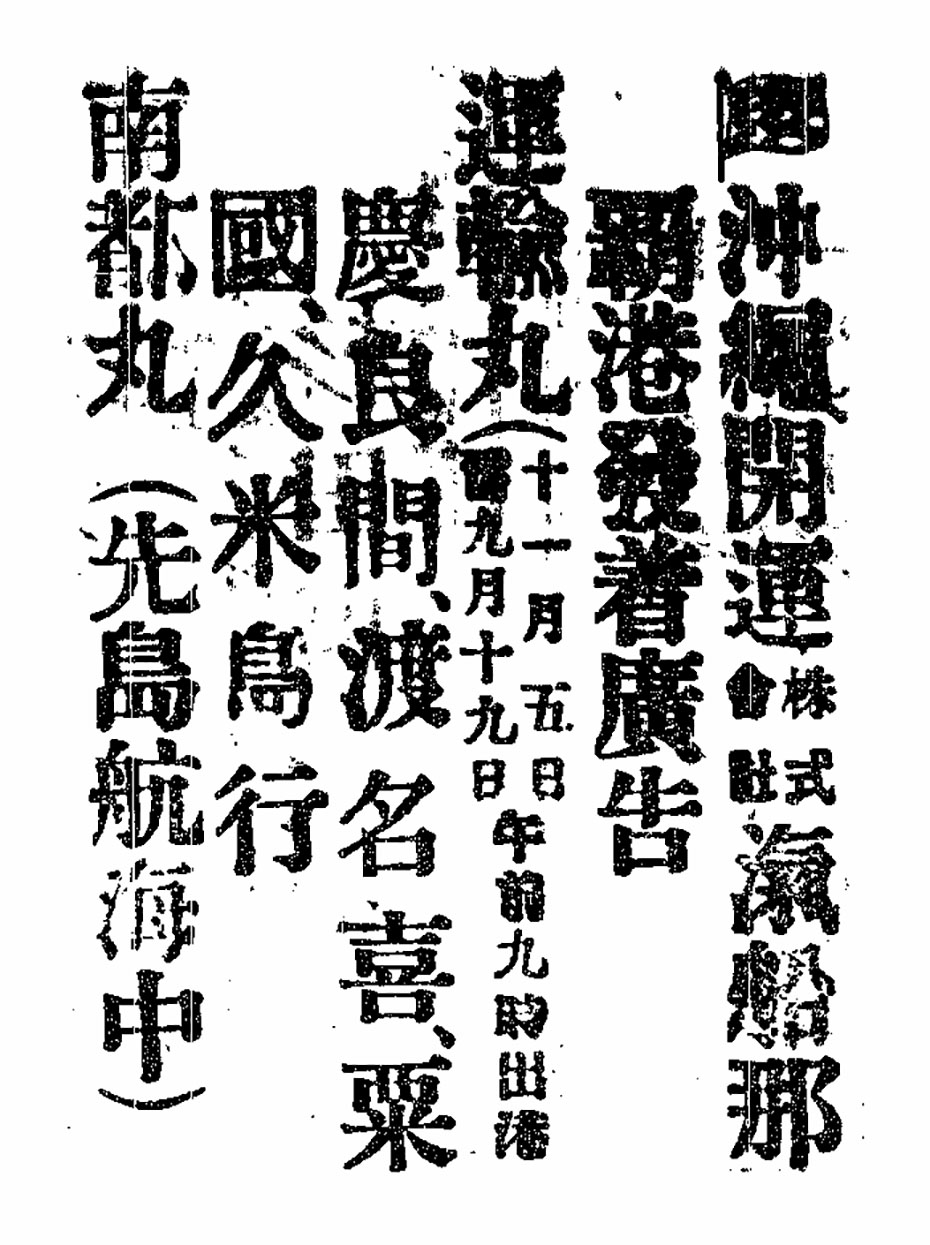 沖繩開運株式會社滊船那
覇港發着廣告
運輸丸(十一月五日
舊九月十九日午前九時出港
慶良間、渡名喜、粟
國、久米島行
南都丸(先島航海中)